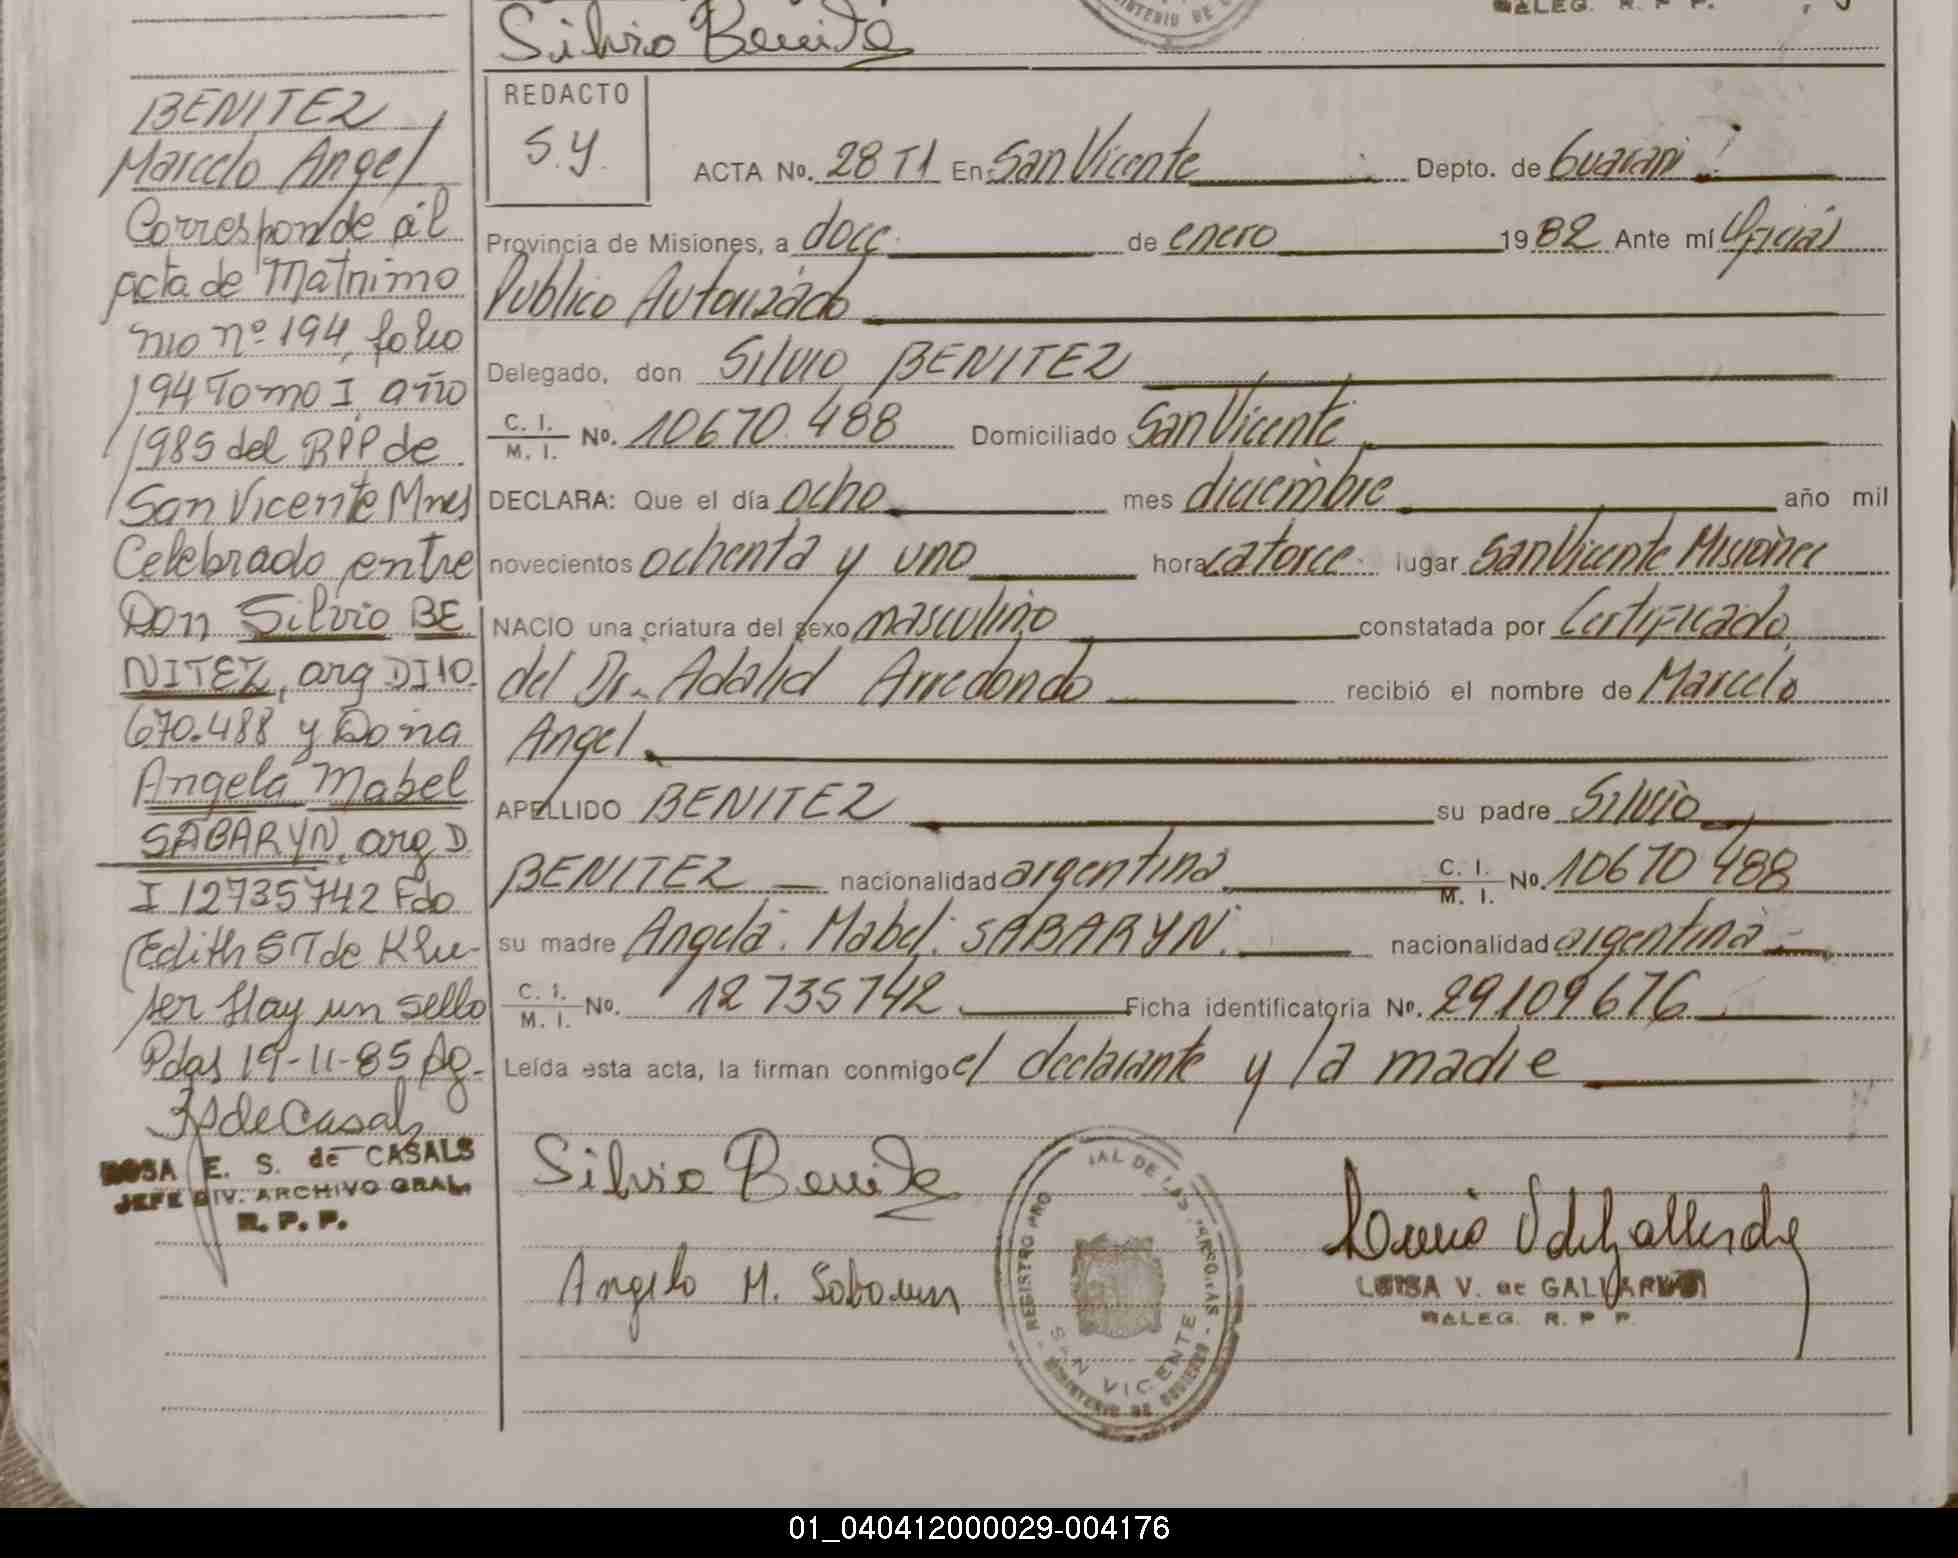 Silvio Benitez
BENITEZ
Marcelo Angel
Corresponde al
acta de Matrimo
nio nº 194, folio
194 Tomo I, año
1985 del RPP de
San Vicente Mnes
Celebrado entre
Don Silvio BE
NITEZ, arg DI 10.
670.488 y Doña
Angela Mabel
SABARYN, arg D
I 12735742 Fdo
Edith S T de Klu-
ser Hay un sello
Pdas 19-11-85 Ag.
ROSA E. S. de CASALS
JEFE DIV. ARCHIVO GRAL.
R. P. P.
REDACTO
S.Y.
ACTA No. 28 T1 En San Vicente Depto. de Guarani
Provincia de Misiones, a doce de enero 1982 Ante mí Oficial
Publico Autorizado
Delegado, don Silvio BENITEZ
C. I. / M. I. No. 10670.488 Domiciliado San Vicente
DECLARA: Que el día ocho mes diciembre año mil
novecientos ochenta y uno hora catorce lugar San Vicente Misiones
NACIO una criatura del sexo masculino constatada por Certificado
del Dr. Adalid Arredondo recibió el nombre de Marcelo
Angel
APELLIDO BENITEZ su padre Silvio
BENITEZ nacionalidad argentina C. I. / M. I. No. 10670 488
su madre Angela Mabel SABARYN nacionalidad argentina
C. I. / M. I. No. 12 735742 Ficha identificatoria No. 29109676
Leída esta acta, la firman conmigo el declarante y la madre
Silvio Benitez
Angela M. Sabaryn
REGISTRO PRO IAL DE LAS PERSONAS
SAN VICENTE
MINISTERIO DE GOBIERNO
LUISA V. de GALLARDO
DALEG. R. P. P.
01_040412000029-004176